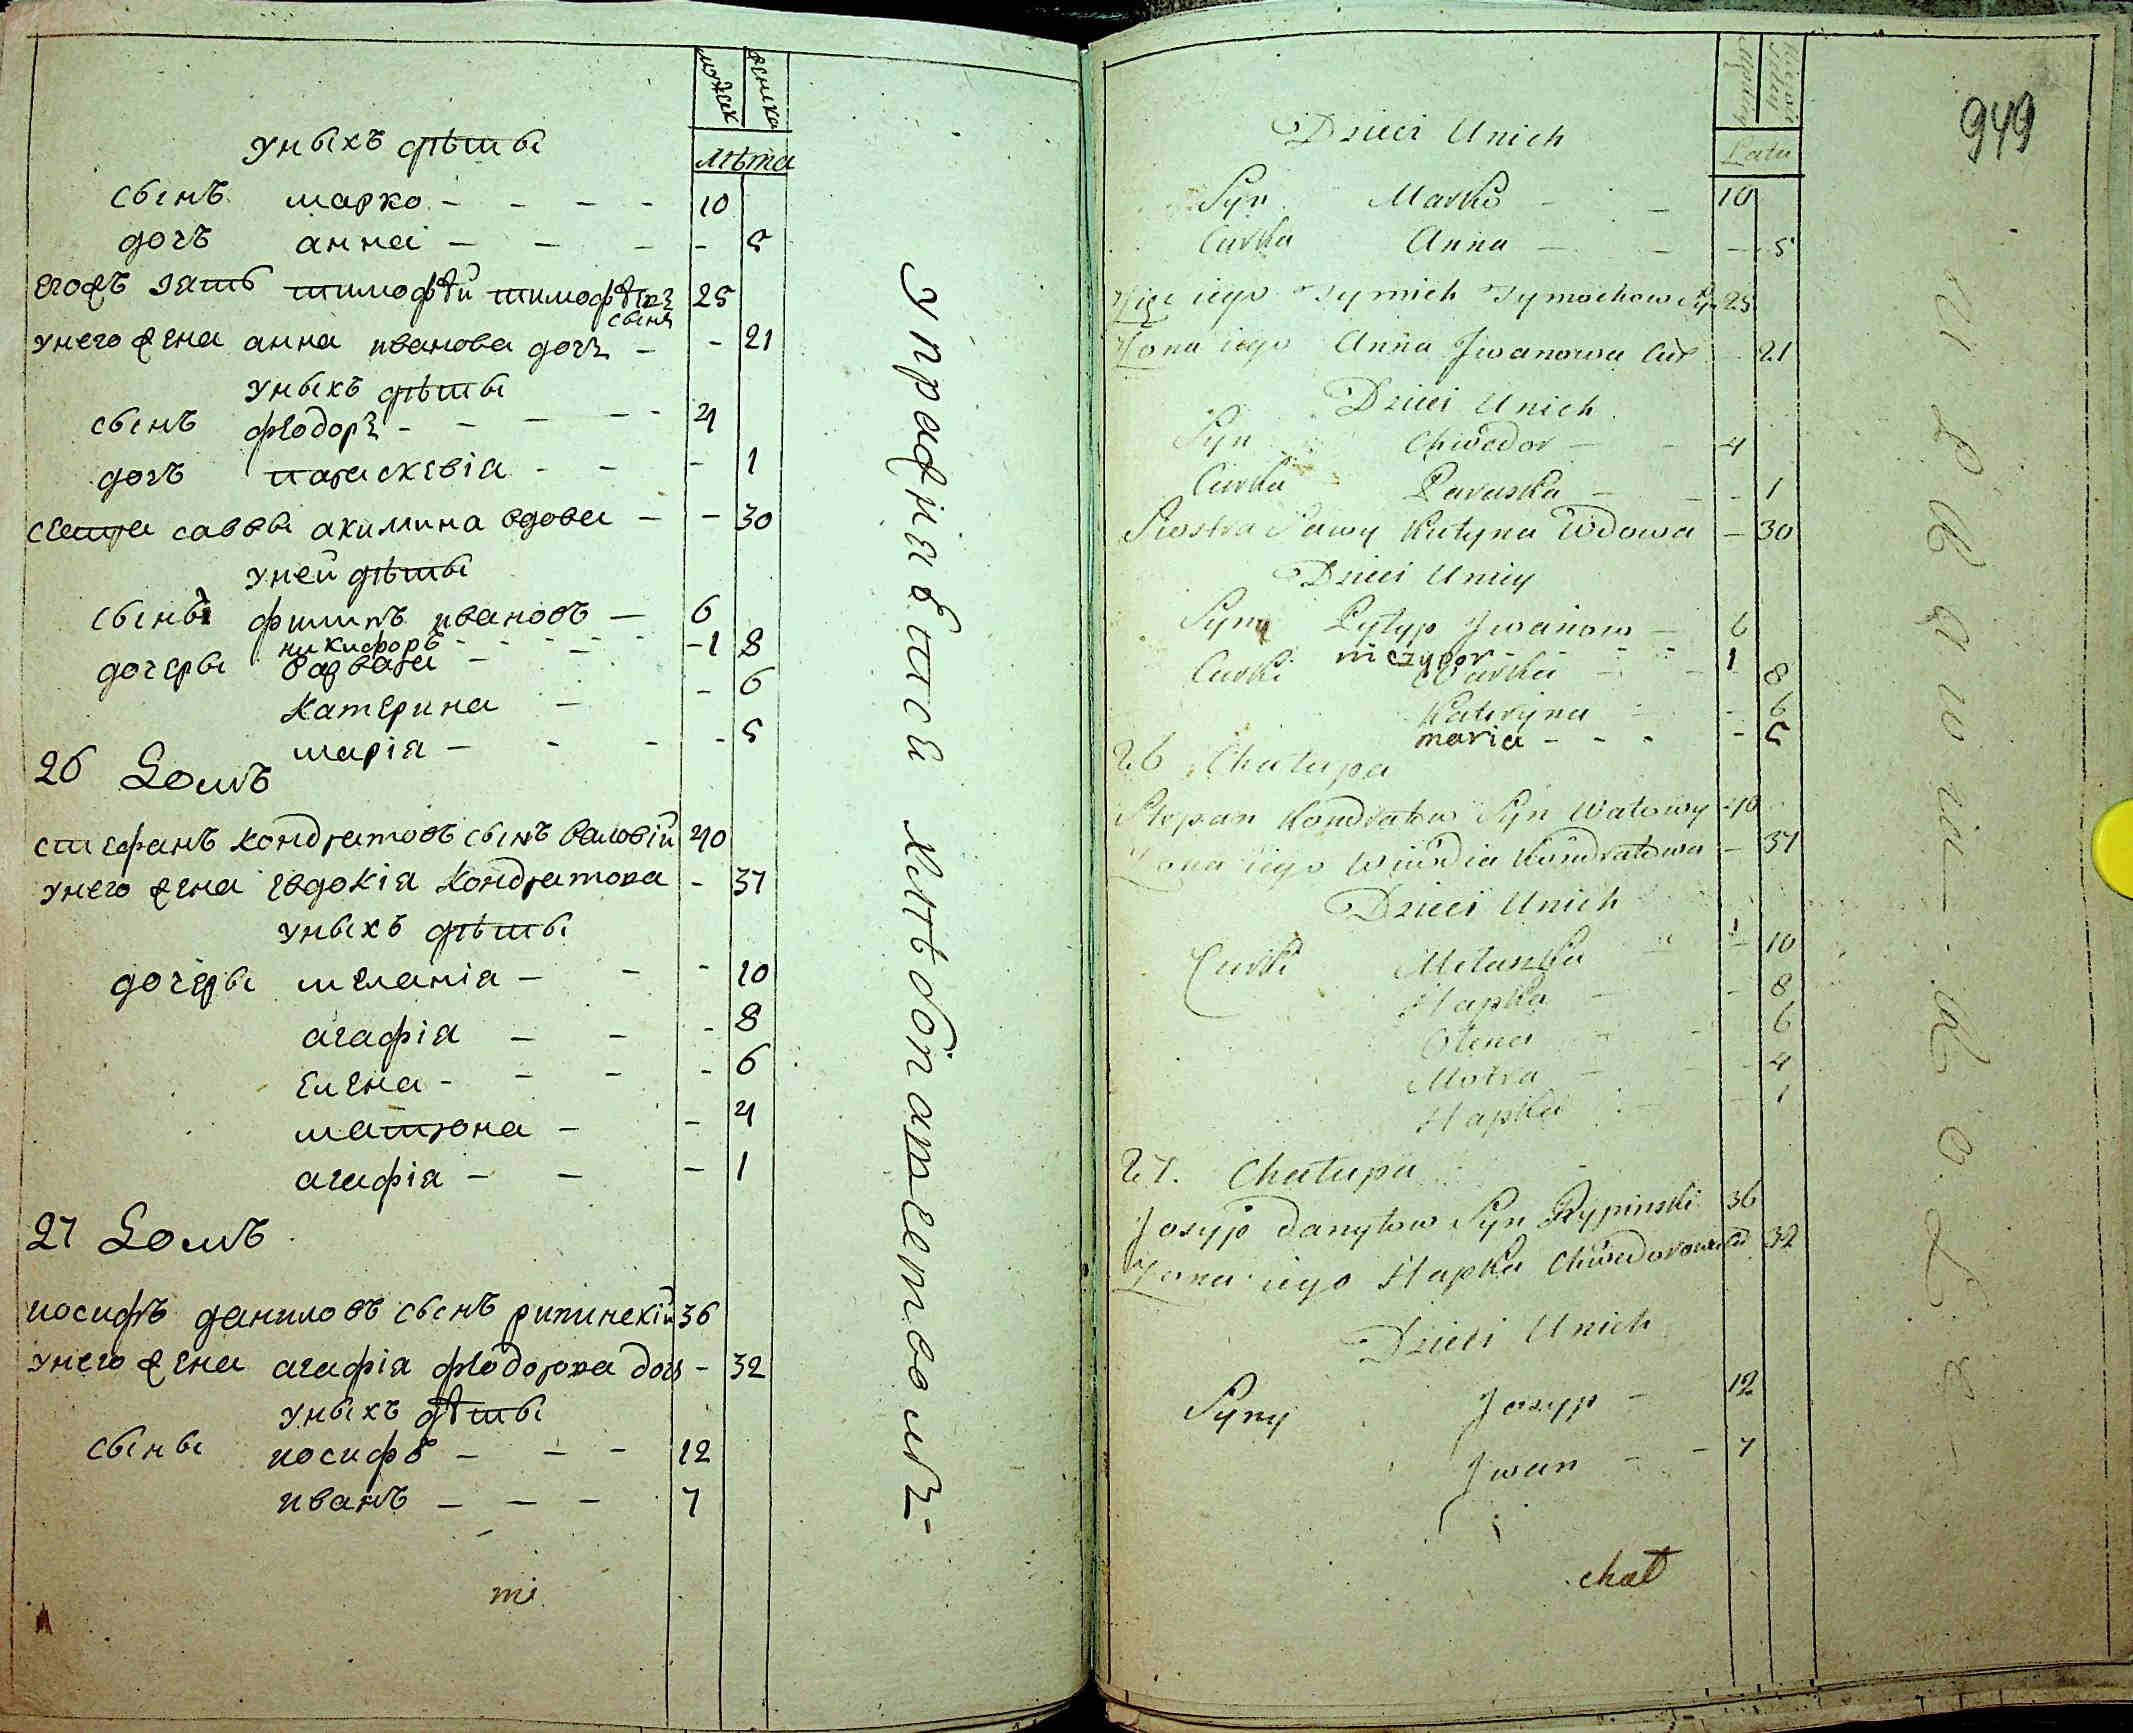 мужск женска
лѣта
уныхъ дѣты
сынъ марко - - - - 10
дочъ анна - - - - 5
егожъ зять тимофѣй тимофѣевъ сынъ 25
унего жена анна иванова дочъ - - 21
уныхъ дѣты
сынъ феодоръ - - - - - 4
дочъ параскевіа - - - 1
сестра саввы акилина вдова - - 30
уней дѣты
сыны филипъ ивановъ - 6
никифоръ - - - - - 1
дочеры варвара - - 8
катерина - - 6
маріа - - - - 5
26 Домъ
стефанъ кондратовъ сынъ валовій 40
унего жена евдокіа кондратова - 37
уныхъ дѣты
дочеры меланіа - - - 10
агафіа - - - 8
елена - - - - 6
матрона - - 4
агафіа - - - 1
27 Домъ
иосифъ даниловъ сынъ рипинскій 36
унего жена агафіа феодорова дочъ - 32
уныхъ дѣты
сыны иосифъ - - - 12
иванъ - - - 7
949
Latu
Dzieci Unich
Syn Marko - - 10
Curka Anna - - - 5
Zięc iego Tymich Tymochow Syn 25
Żona iego Anna Jwanowa Cur - 21
Dzieci Unich
Syn Chwedor - - 4
Curka Paraska - - - 1
Siostra Sawy Kutyna Wdowa - 30
Dzieci Uniey
Syny Pylyp Jwanow - 6
niczypor - - - - 1
Curki Warka - - 8
Kateryna - - 6
maria - - - - 5
26 Chatupa
Stepan Kondratow Syn Watowy 40
Żona iego Wiwdia Kondratowa - 37
Dzieci Unich
Curki Mełaszka - - 10
Hapka - - 8
Olena - - 6
Motra - - 4
Hapka - - 1
27. Chatupa
Josyp Danyłow Syn Rypinski 36
Żona iego Hapka Chwedorowa Cu 32
Dzieci Unich
Syny Josyp - 12
Jwan - - 7
chat